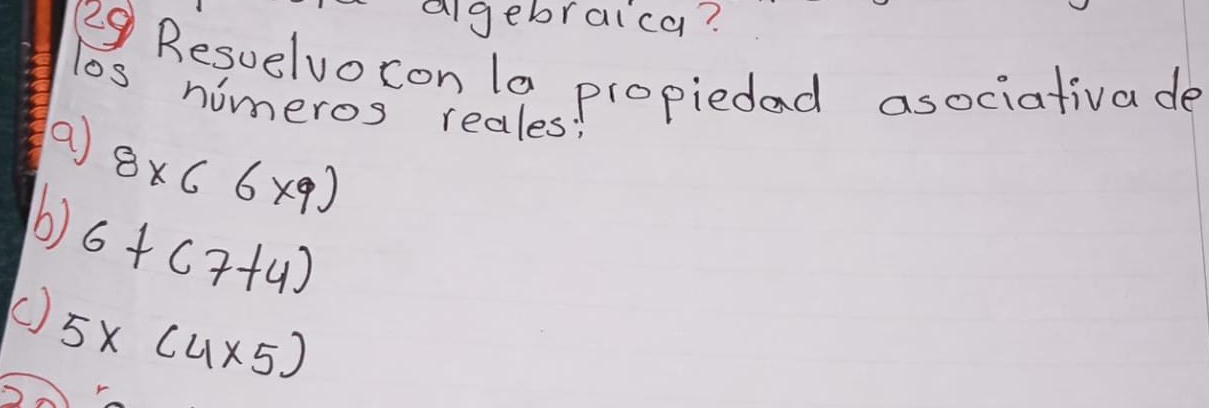 algebraica?
29 Resuelvo con la propiedad asociativa de
los números reales:
a) 8x( 6x9)
b) 6+(7+4)
c) 5x (4x5)